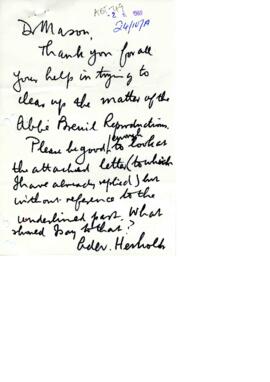 2 1969
24/10/A
Dr Mason,
Thank you for all
your help in trying to
clear up the matter of the
Abbé Breuil Reproductions.
Please be good enough to look at
the attached letter (to which
I have already replied) but
without reference to the
underlined part. What
should I say to that?